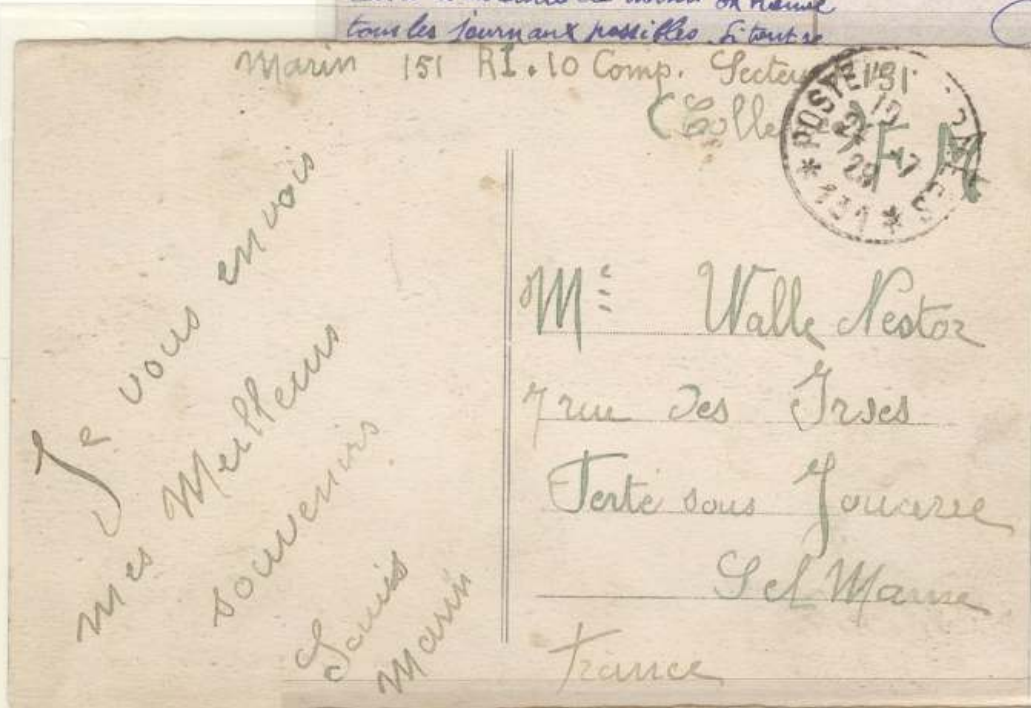 tous les journaux possibles. Si tout se
Marin 151 RI. 10 Comp. Secteur 131
F M
POSTE
131
Je vous envois
mes Meilleurs
souvenirs
Louis
Marin
Me Walle Nestor
7 rue des
Ferté sous Jouarre
S et Marne
France